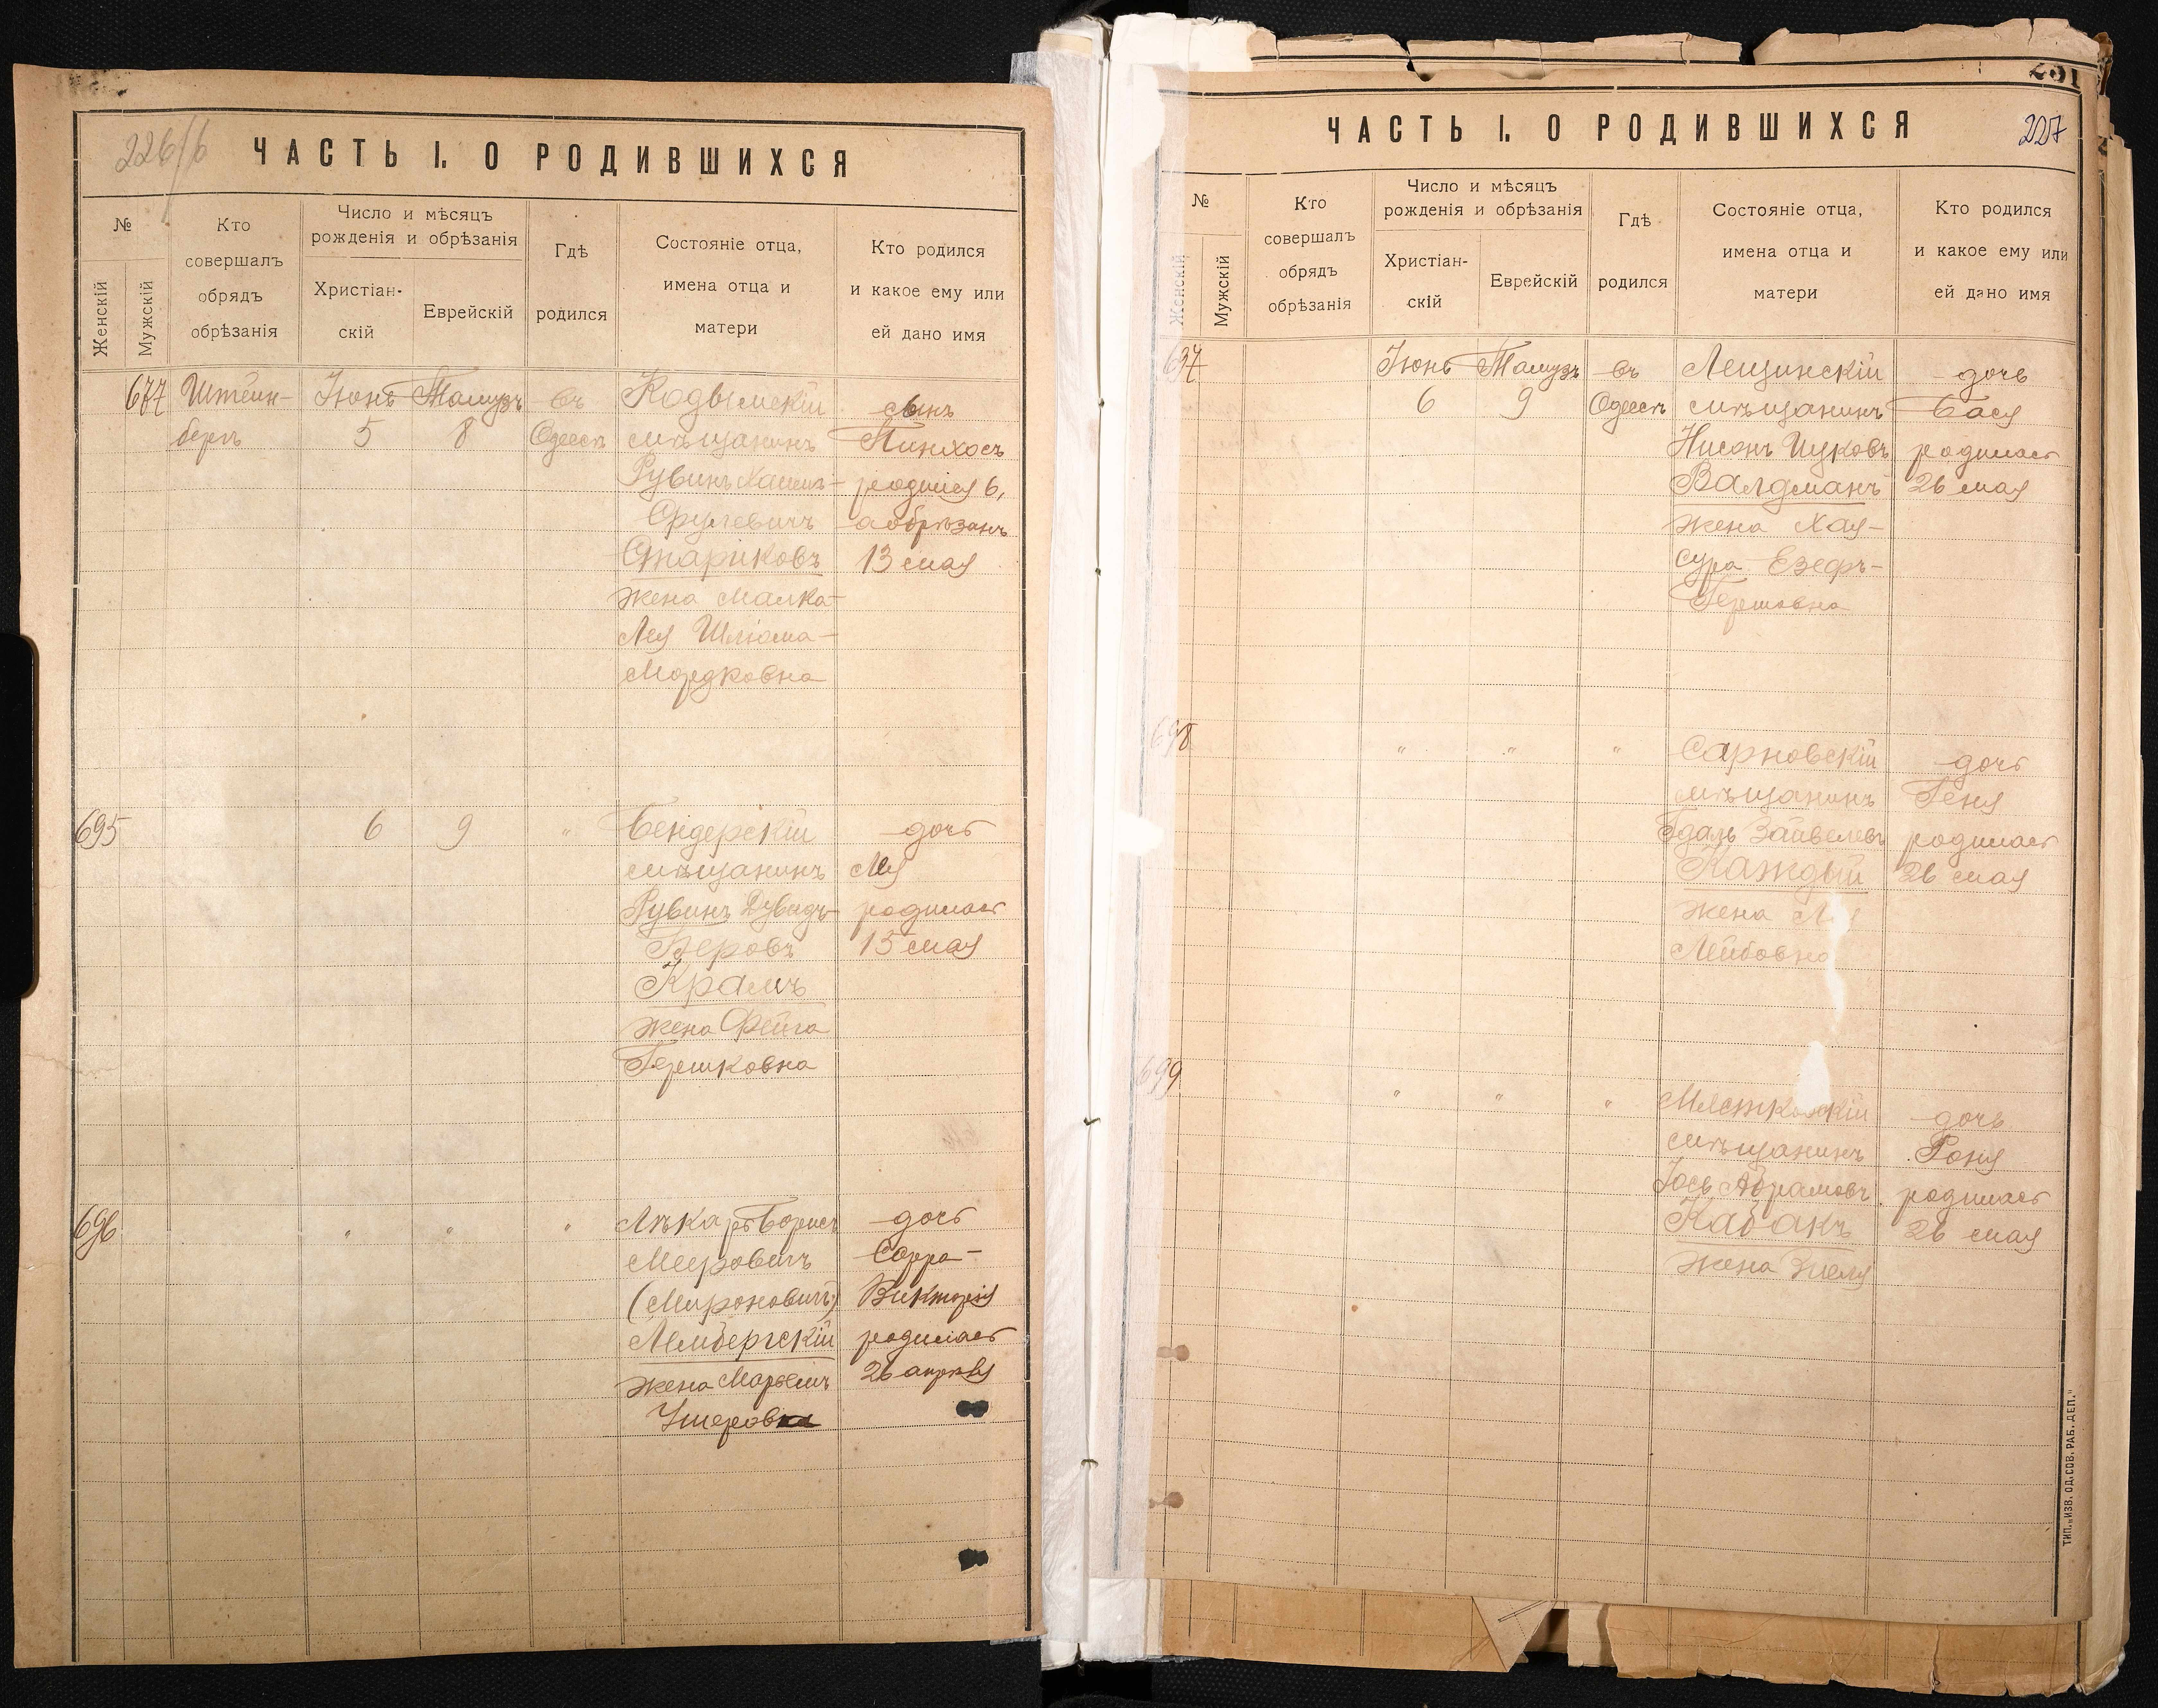 226/б
ЧАСТЬ I. О РОДИВШИХСЯ
№
Женскій
Мужскій
Кто
совершалъ
обрядъ
обрѣзанія
Число и мѣсяцъ
рожденія и обрѣзанія
Христіан-
скій
Еврейскій
Гдѣ
родился
Состояніе отца,
имена отца и
матери
Кто родился
и какое ему или
ей дано имя
677
Штейн-
бергъ
Іюнь
5
Тамузъ
8
въ
Одессѣ
Кодымскій
мѣщанинъ
Рувинъ Хаимъ-
Срулевичъ
Стариковъ
жена Малка-
Лея Шлюма-
Мордковна
сынъ
Пинхосъ
родился 6,
а обрѣзанъ
13 мая
695
6
9
"
Бендерскій
мѣщанинъ
Рувинъ Дувидъ-
Беровъ
Крамъ
жена Фейга
Гершковна
дочь
Лея
родилась
15 мая
696
"
"
"
Лѣкарь Борисъ
Мееровичъ
(Мироновичъ)
Лембергскій
жена Марьемъ
Ушеровна
дочь
Сарра-
Викторія
родилась
26 апрѣля
227
ЧАСТЬ I. О РОДИВШИХСЯ
№
Женскій
Мужскій
Кто
совершалъ
обрядъ
обрѣзанія
Число и мѣсяцъ
рожденія и обрѣзанія
Христіан-
скій
Еврейскій
Гдѣ
родился
Состояніе отца,
имена отца и
матери
Кто родился
и какое ему или
ей дано имя
697
Іюнь
6
Тамузъ
9
въ
Одессѣ
Лещинскій
мѣщанинъ
Нисонъ Ицковъ
Валдманъ
жена Хая-
Сура Езефъ-
Гершовна
дочь
Бася
родилась
26 мая
698
"
"
"
Сарновскій
мѣщанинъ
Гдаль Зайвелевъ
Каждый
жена
Лейбовна
дочь
Геня
родилась
26 мая
699
"
"
"
мѣщанинъ
Іось Абрамовъ
Кабакъ
жена
дочь
Роня
родилась
26 мая
ТИП. „ИЗВ. ОД. СОВ. РАБ. ДЕП."